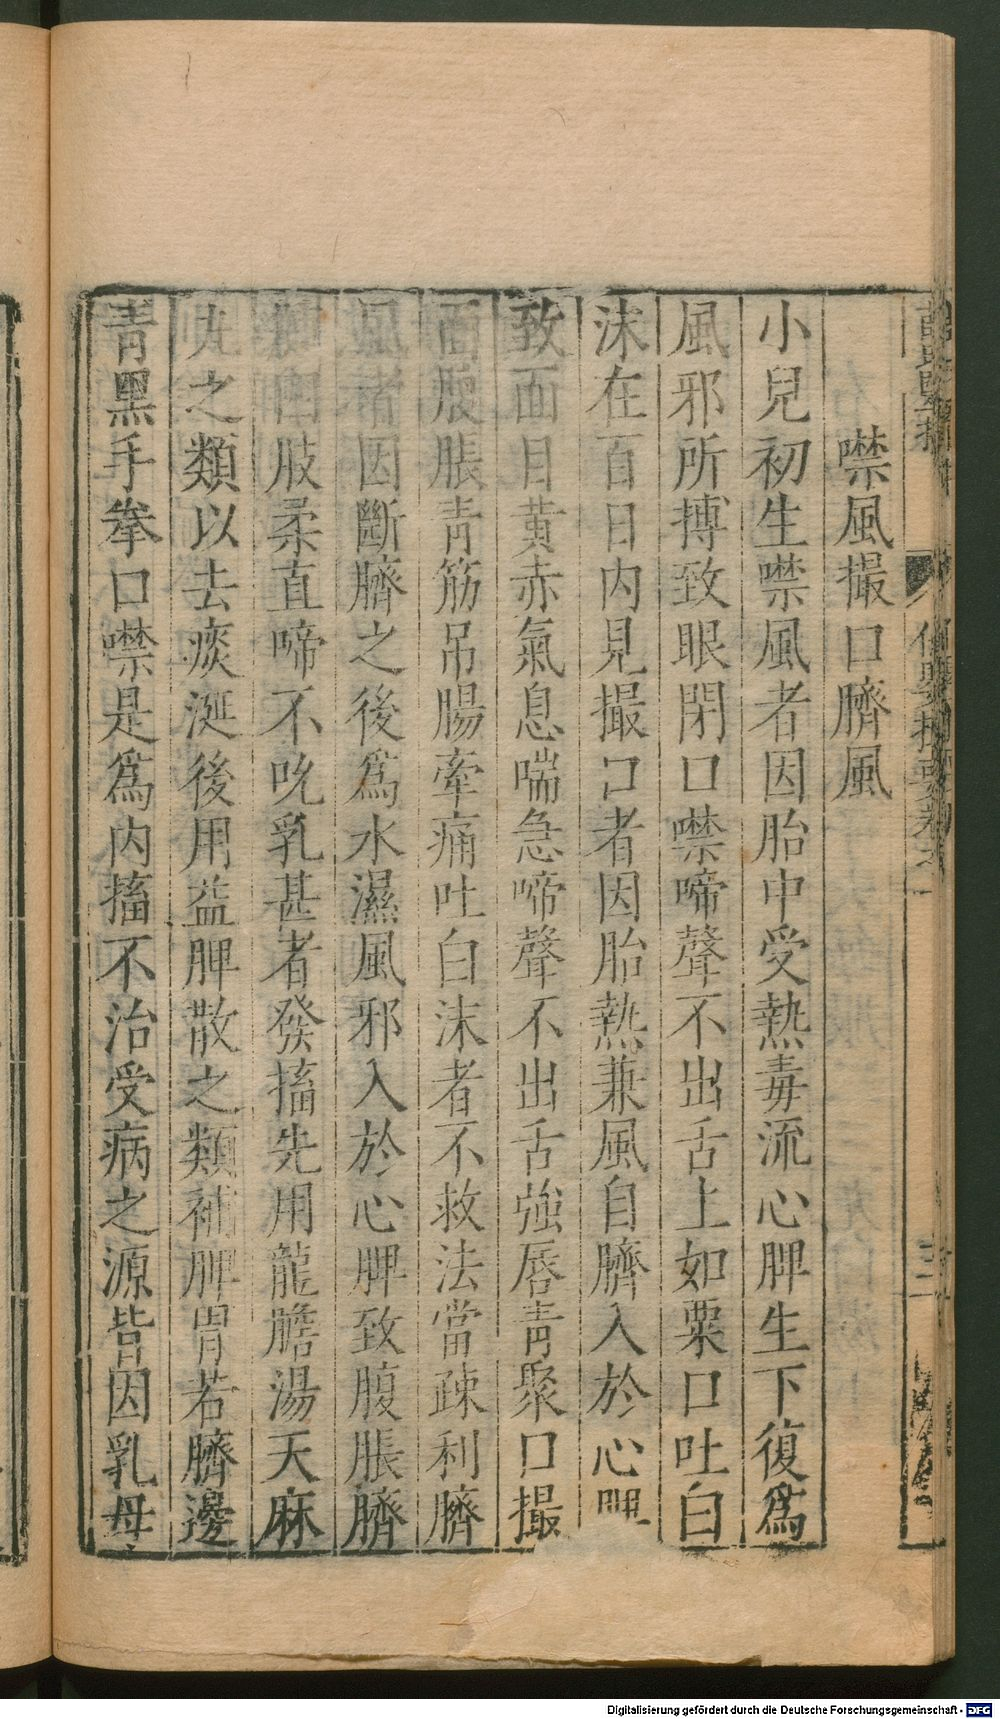 噤風撮口臍風
小兒初生噤風者因胎中受熱毒流心脾生下復爲
風邪所搏致眼閉口噤啼聲不出舌上如粟口吐白
沫在百日內見撮口者因胎熱兼風自臍入於心脾
致面目黃赤氣息喘急啼聲不出舌強唇青聚口撮
面腹脹青筋吊腸牽痛吐白沫者不救法當疎利臍
風者因斷臍之後爲水濕風邪入於心脾致腹脹臍
肢柔直啼不吮乳甚者發搐先用龍膽湯天麻
丸之類以去痰涎後用益脾散之類補脾胃若臍邊
青黑手拳口噤是爲內搐不治受病之源皆因乳母
保嬰撮要卷之一
三
Digitalisierung gefördert durch die Deutsche Forschungsgemeinschaft - DFG